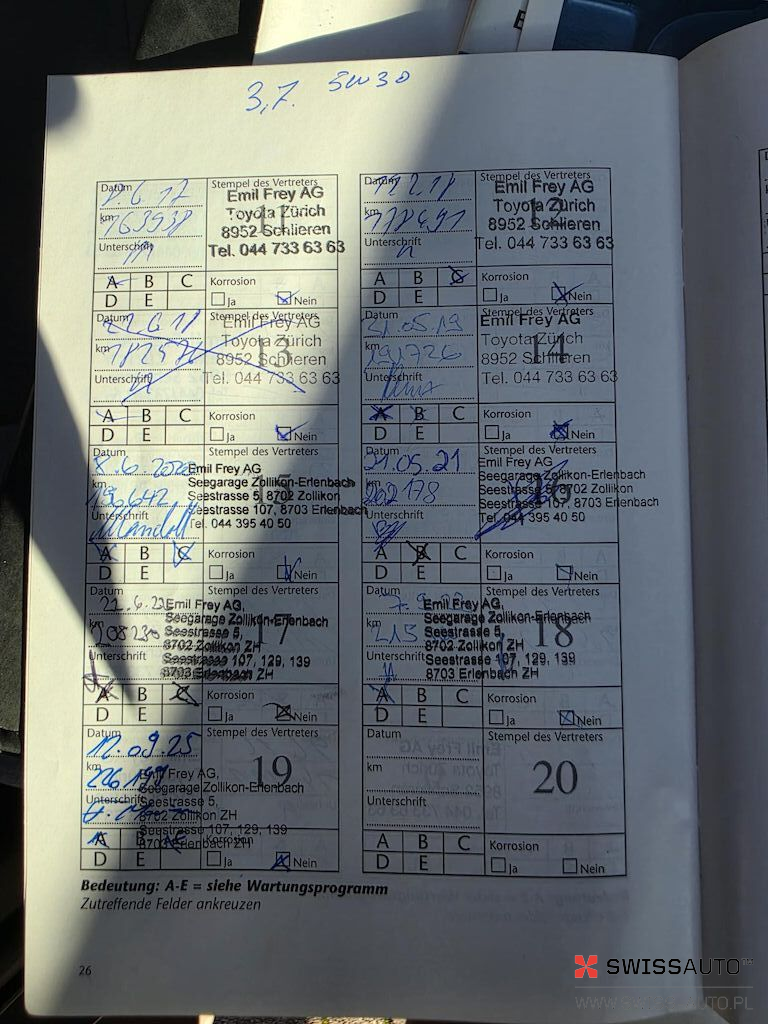 3,7. 5W30
Datum
2.6.17
km
163938
Unterschrift
Stempel des Vertreters
11
Emil Frey AG
Toyota Zürich
8952 Schlieren
Tel. 044 733 63 63
A B C
D E
Korrosion
Ja Nein
Datum
km
Unterschrift
Stempel des Vertreters
12
Emil Frey AG
Toyota Zürich
8952 Schlieren
Tel. 044 733 63 63
A B C
D E
Korrosion
Ja Nein
Datum
22.6.18
km
Unterschrift
Stempel des Vertreters
13
Emil Frey AG
Toyota Zürich
8952 Schlieren
Tel. 044 733 63 63
A B C
D E
Korrosion
Ja Nein
Datum
21.05.19
km
191726
Unterschrift
Stempel des Vertreters
14
Emil Frey AG
Toyota Zürich
8952 Schlieren
Tel. 044 733 63 63
A B C
D E
Korrosion
Ja Nein
Datum
8.6.2020
km
196642
Unterschrift
Stempel des Vertreters
15
Emil Frey AG
Seegarage Zollikon-Erlenbach
Seestrasse 5, 8702 Zollikon
Seestrasse 107, 8703 Erlenbach
Tel. 044 395 40 50
A B C
D E
Korrosion
Ja Nein
Datum
21.05.21
km
202178
Unterschrift
Stempel des Vertreters
16
Emil Frey AG
Seegarage Zollikon-Erlenbach
Seestrasse 5, 8702 Zollikon
Seestrasse 107, 8703 Erlenbach
Tel. 044 395 40 50
A B C
D E
Korrosion
Ja Nein
Datum
km
Unterschrift
Stempel des Vertreters
17
Emil Frey AG,
Seegarage Zollikon-Erlenbach
Seestrasse 5,
8702 Zollikon ZH
Seestrasse 107, 129, 139
8703 Erlenbach ZH
A B C
D E
Korrosion
Ja Nein
Datum
km
215
Unterschrift
Stempel des Vertreters
18
Emil Frey AG,
Seegarage Zollikon-Erlenbach
Seestrasse 5,
8702 Zollikon ZH
Seestrasse 107, 129, 139
8703 Erlenbach ZH
A B C
D E
Korrosion
Ja Nein
Datum
12.09.25
km
Unterschrift
Stempel des Vertreters
19
Emil Frey AG,
Seegarage Zollikon-Erlenbach
Seestrasse 5,
8702 Zollikon ZH
Seestrasse 107, 129, 139
8703 Erlenbach ZH
A B C
D E
Korrosion
Ja Nein
Datum
km
Unterschrift
Stempel des Vertreters
20
A B C
D E
Korrosion
Ja Nein
Bedeutung: A-E = siehe Wartungsprogramm
Zutreffende Felder ankreuzen
26
SWISSAUTO
WWW.SWISSAUTO.PL